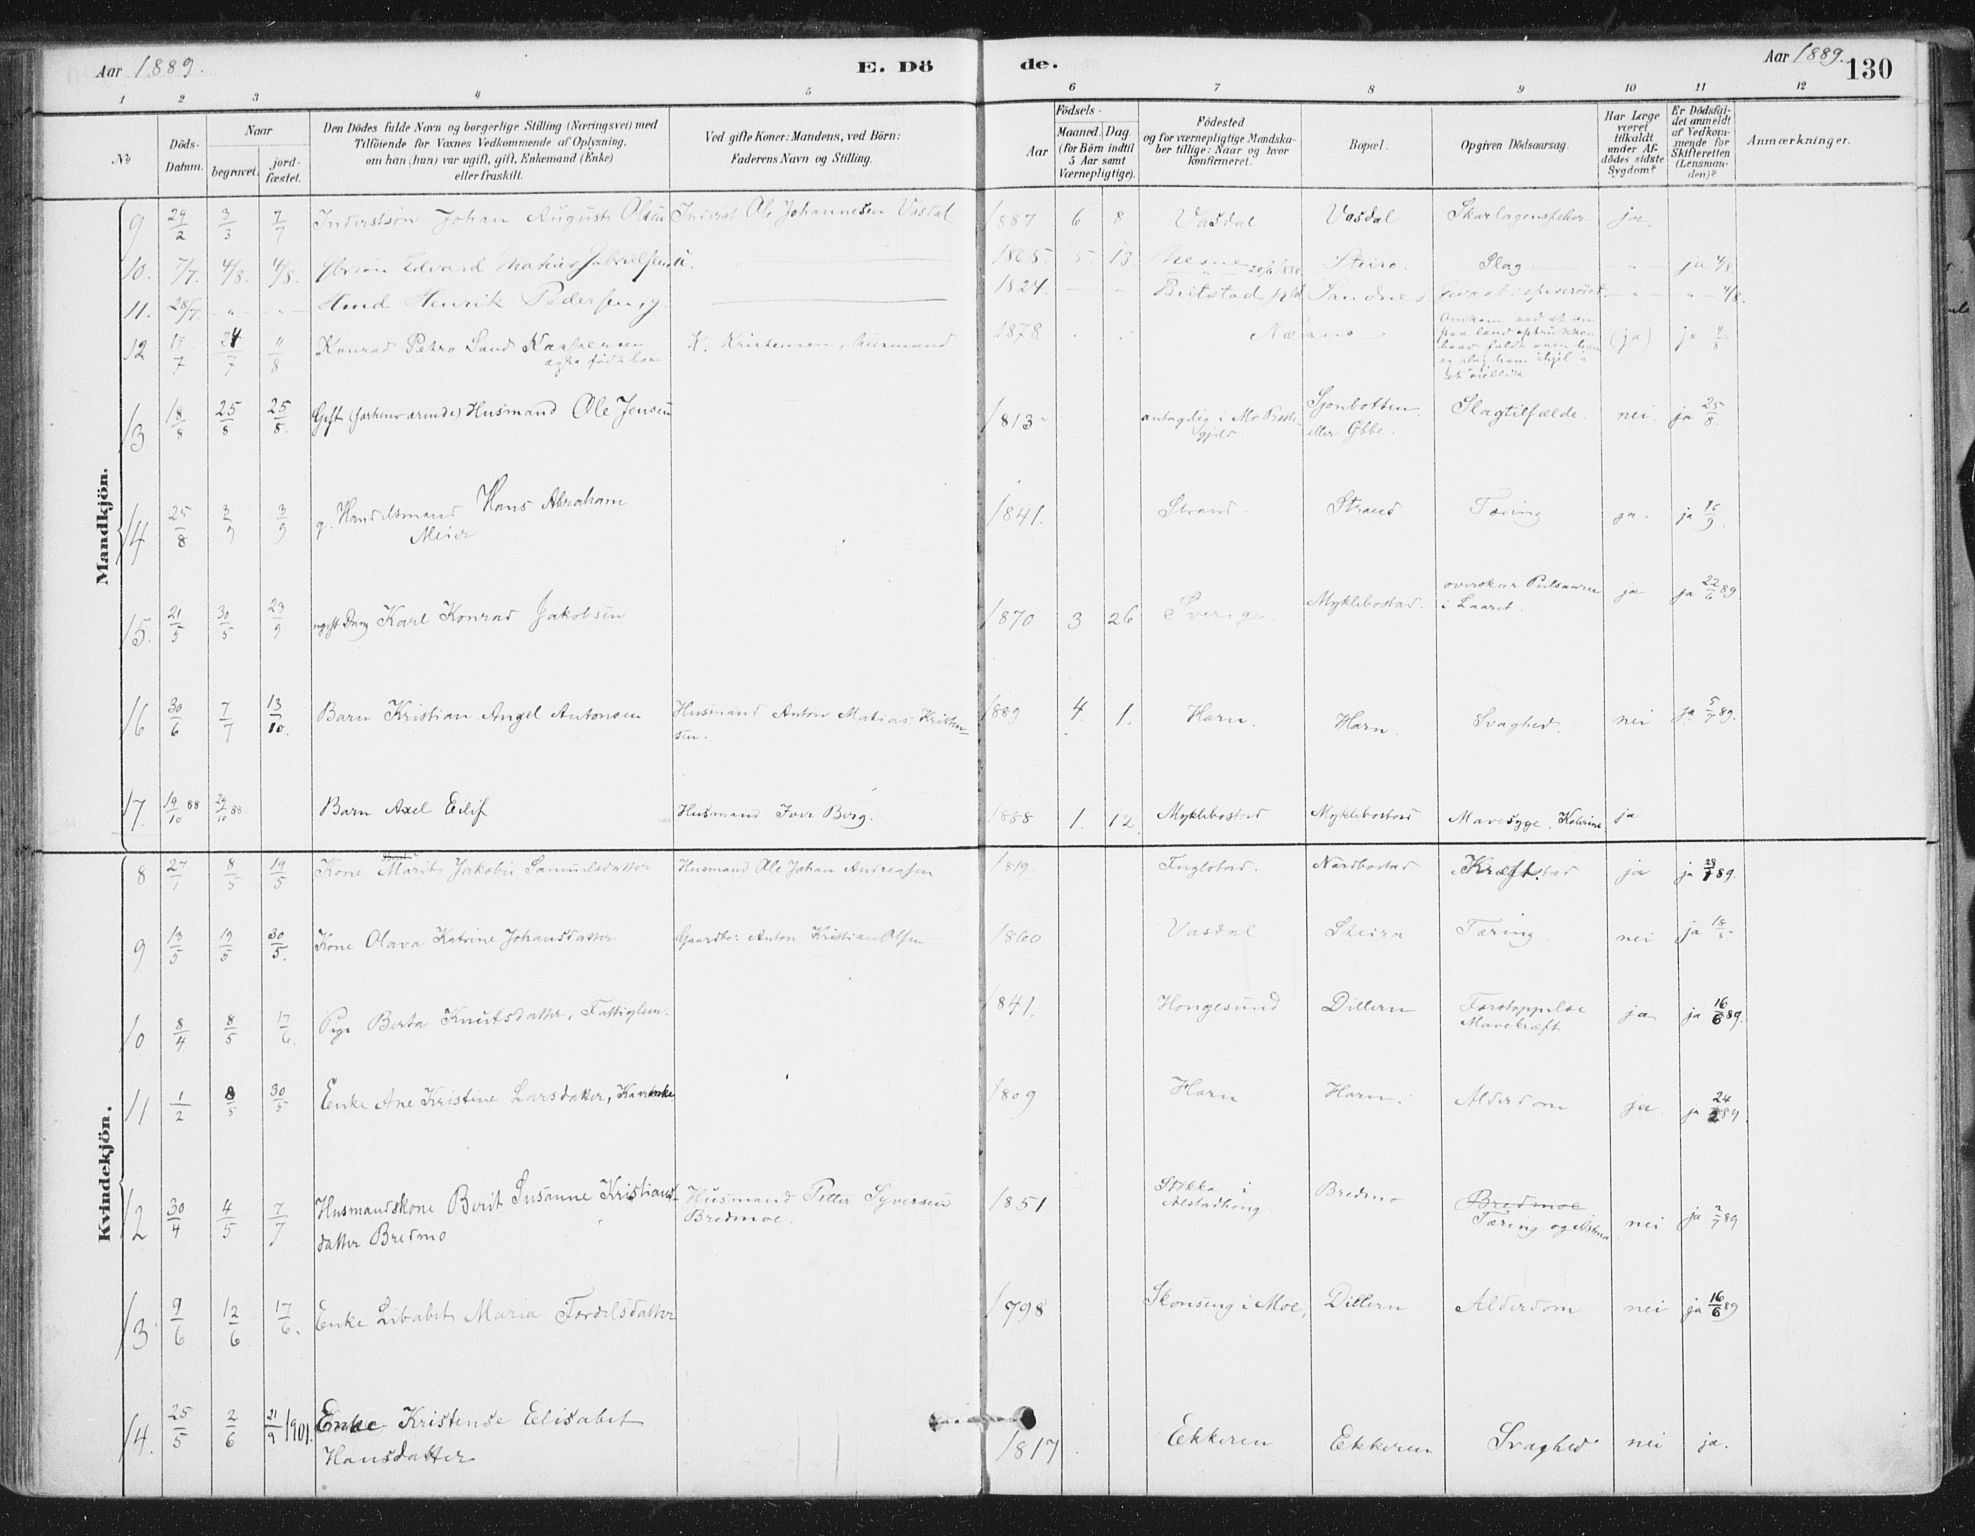 Aar 1889.
E. Dö
de.
Aar 1889.
130
1 2 3 4 5 6 7 8 9 10 11 12
No
Döds-Datum.
Naar
begravet.
jord-fæstet.
Den Dödes fulde Navn og borgerlige Stilling (Næringsvei) med
Tilföiende for Voxnes Vedkommende af Oplysning,
om han (hun) var ugift, gift, Enkemand (Enke)
eller fraskilt.
Ved gifte Koner: Mandens, ved Börn:
Faderens Navn og Stilling.
Födsels-
Aar
Maaned. Dag
(for Börn indtil
5 Aar samt
Værnepligtige).
Födested
og for værnepligtige Mandska-
ber tillige: Naar og hvor
konfirmeret.
Bopæl.
Opgiven Dödsaarsag.
Har Læge
været
tilkaldt
under Af-
dödes sidste
Sygdom?
Er Dödsfal-
det anmeldt
af Vedkom-
mende for
Skifteretten
(Lensman-
den)?
Anmærkninger.
Mandkjön.
9 24/2 3/3 7/7 Inderstsön Johan August Olsen Inderst Ole Johannesen Vasdal 1887 6 8 Vasdal Vasdal Skarlagensfeber ja.
10. 7/7. 4/8. 4/8. Edvard Mathias Gabrielsen, u. 1865. 5 13 Nesne Steiro. Slag ja 4/8.
11. 28/7. Henrik Pedersen, g. 1824. Beitstad Sandnes 4/8.
12 13/7 24/7 4/8 Konrad Petro Sand Kaspersen
ægte födt barn
K. Kristensen, Husmand 1878 Næsne
Omkom ved at en
paa land optrukken
baad faldt
(ja) ja 4/8
13 18/8 25/8 25/8. Gift (forhenværende) Husmand Ole Jensen 1813 antagelig i Mo Præste-
gjeld.
Sjonbotten
eller
Slagtilfælde. nei. ja 25/8.
14 25/8 3/9 3/9 g. Handelsmand Hans Abraham
Meier
1841. Strand. Strand Tæring ja. ja 15/9.
15. 21/5 30/5 23/9 ugift Dreng Karl Konrad Jakobsen 1870 3 26 Sverige. Myklebostad. overskar Pulsaaren
i Laaret.
ja ja 22/6 89
16 30/6 7/7 13/10. Barn Kristian Angel Antonsen Husmand Anton Matias Kristen-
sen.
1889 4. 1. Harn. Harn. Svaghed. nei ja 5/7 89.
17. 19/10 88 29/10 88 Barn Axel Eilif Husmand Iver Berg. 1888 1. 12. Myklebostad Myklebostad Mavesyge, Kolerine ja
Kvindekjön.
8 27/1 8/5 19/5 Kone Marit Jakobie Samuelsdatter Husmand Ole Johan Andreasen 1819. Inglstad. Nordbostad Kræft. ja ja 28/1 89.
9 13/5 19/5 30/5. Kone Olava Katrine Johansdatter Gaardbr: Anton Kristian Olsen 1860 Vasdal Steiro Tæring nei ja 18/5
10 8/4 8/5 17/6. Pige Berta Knutsdatter, Fattiglem. 1841. Hongesund Dillern Forstoppelse
Mavekræft
ja ja 16/6 89.
11 1/2 8/5 30/5 Enke Ane Kristine Larsdatter, Kaarenke 1809 Harn Harn. Alderdom ja. ja 24/2 89.
12 30/4 4/5 7/7 Husmandskone Berit Susanne Kristians-
datter Bredmo
Husmand Petter Syversen
Bredmoe.
1851 Stokka i
Alstadhoug.
Bredmo Bredmoe
Tæring og
nei ja 2/7 89
13. 9/6 12/6 17/6. Enke Lisabet Maria Fordelsdatter 1798 Skonseng i Moe, Dillern Alderdom nei ja 16/6 89
14. 25/5 2/6 21/9 1901. Enke Kristense Elisabet
Hansdatter
1817 Ekkeren Ekkeren Svaghed nei ja.